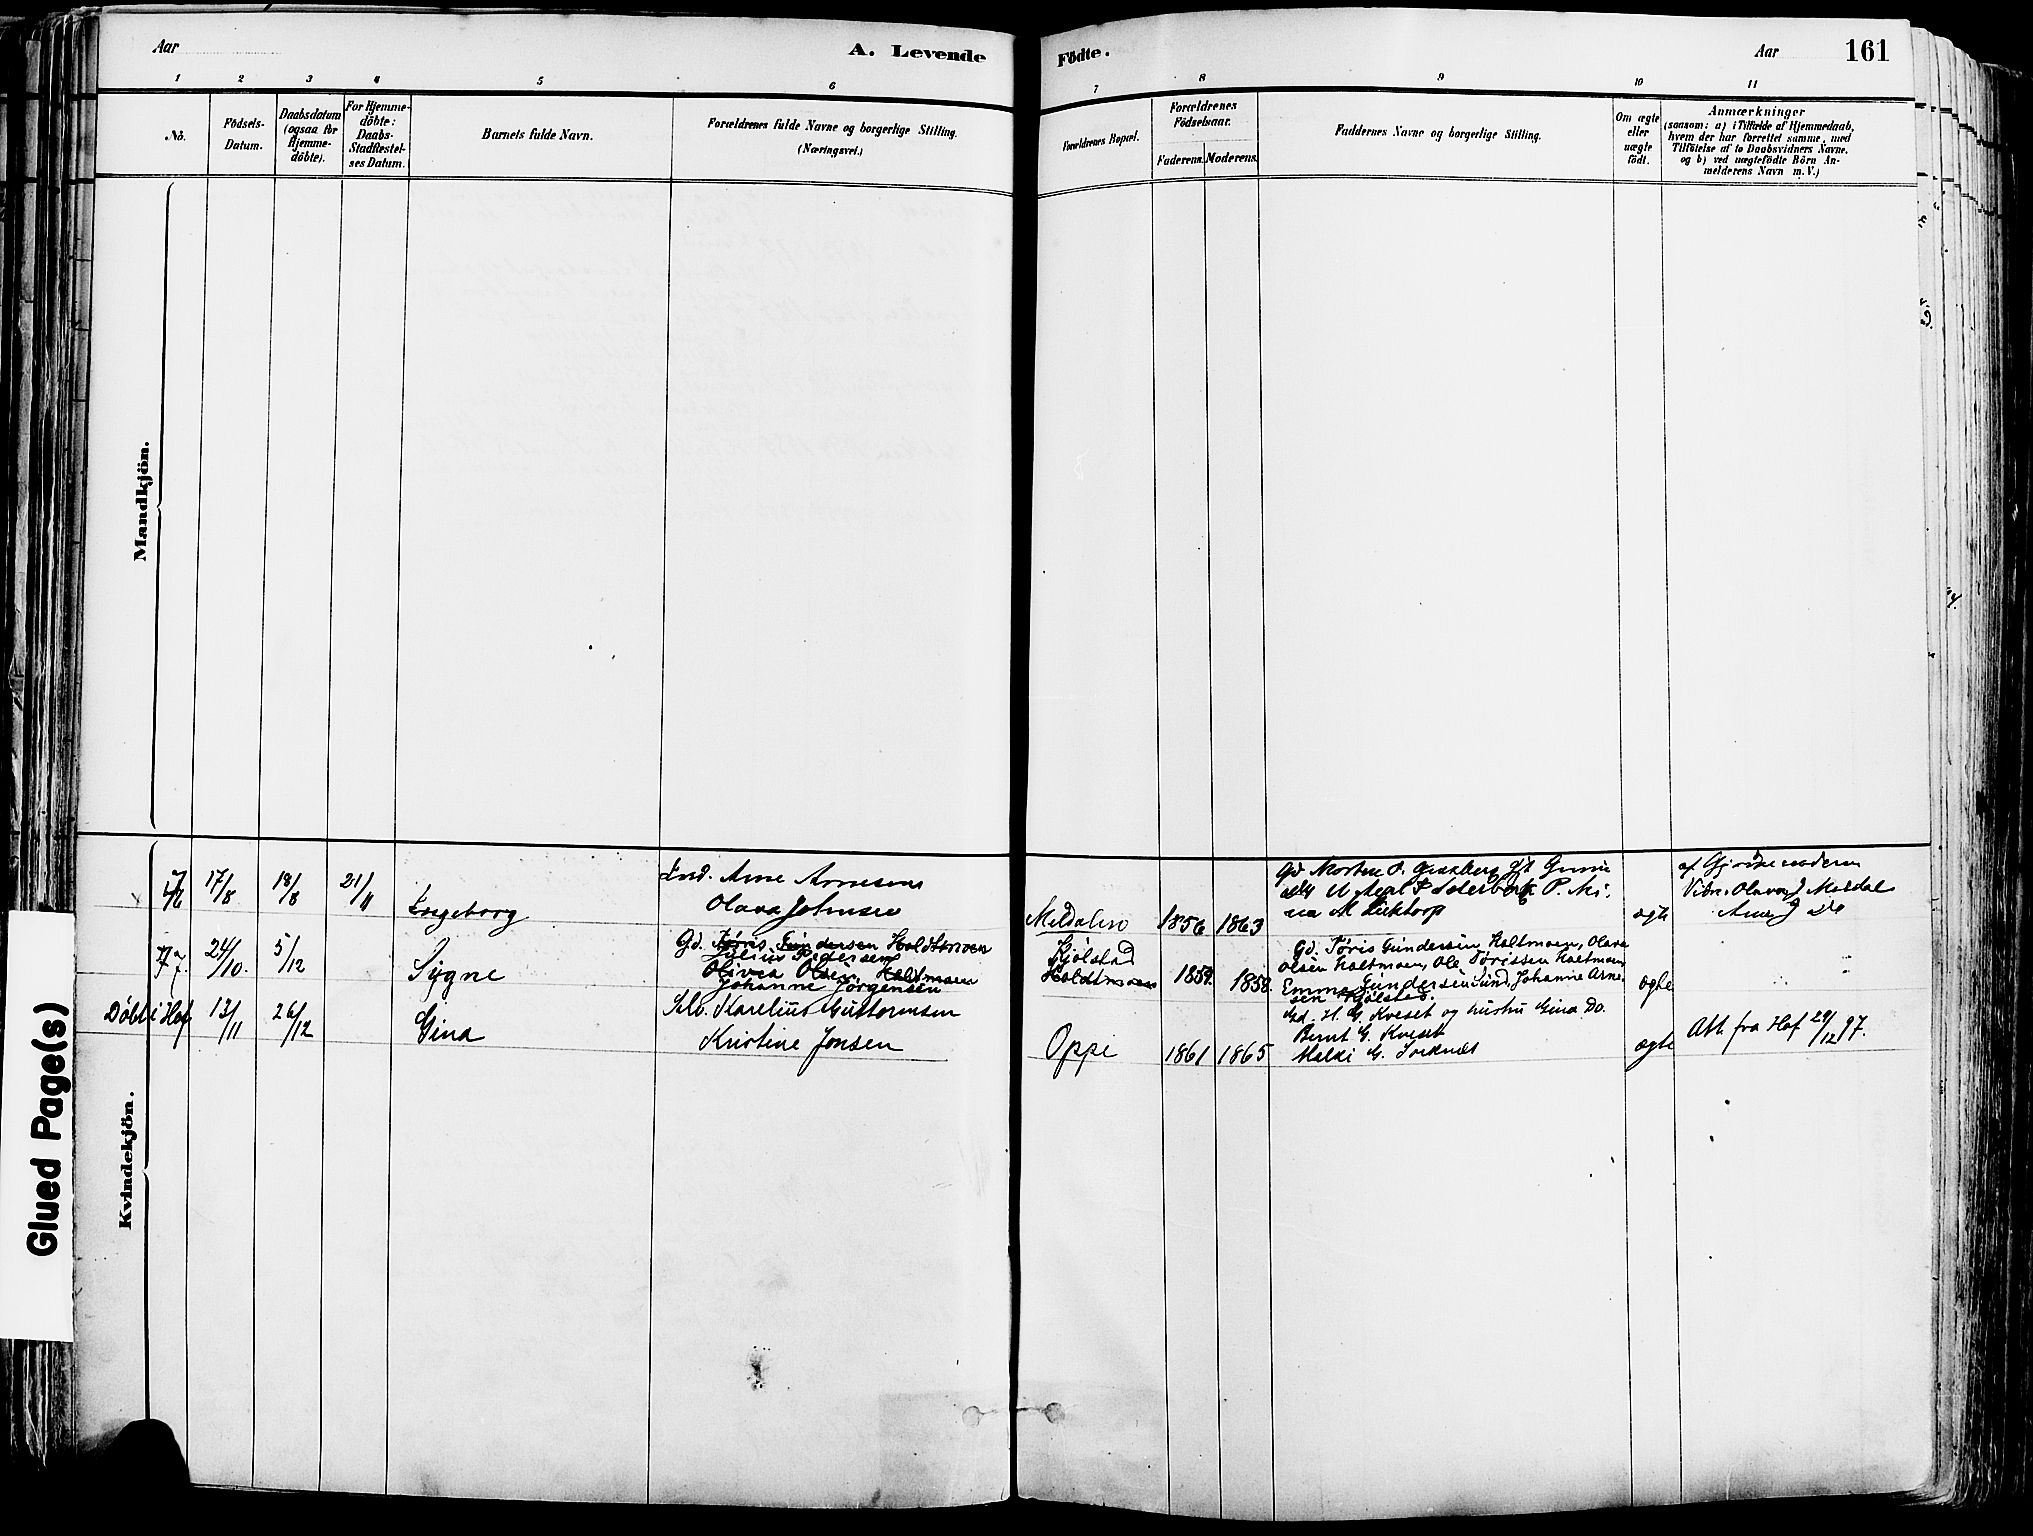 Aar
A. Levende
Födte.
Aar
161
1 2 3 4 5 6 7 8 9 10 11
No.
Födsels-
Datum.
Daabsdatum
(ogsaa for
Hjemme-
döbte).
For Hjemme-
döbte:
Daabs-
Stadfæstel-
ses Datum.
Barnets fulde Navn.
Forældrenes fulde Navne og borgerlige Stilling.
(Næringsvei.)
Forældrenes Bopæl.
Forældrenes
Födselsaar.
Faderens. Moderens.
Faddernes Navne og borgerlige Stilling.
Om ægte
eller
uægte
födt.
Anmærkninger
(saasom: a) i Tilfælde af Hjemmedaab,
hvem der har forrettet samme, med
Tilföielse af to Daabsvidners Navne.
og b) ved uægtefödte Börn An-
melderens Navn m. V.)
Mandkjön.
Kvindekjön.
17/8 18/8 21/11
Ingeborg
Arne Arnesens
Olava Johnsen
Meldalen
1856 1863
Gd Morten O.
ægte
Vibe Olava J Meldal
Arne J Do
7. 24/10. 5/12
Sygne
Gd. Töris Gundersen Holdtmoen
Julius Pedersen
Olivea Olsen Holdtmoen
Johanne Jörgensen
Kjölstad
Holdtmoen
1859. 1858.
Gd. Töris Gundersen Holtmoen, Olava
Olsen Holtmoen, Ole Törissen Holtmoen
Emma Gundersen Sund, Johanne Arne-
sen Kjölstad.
ægte
Döbt i Hof 13/11 26/12
Gina
Selb. Karelius Guttormsen
Kristine Jonsen
Oppe
1861 1865
Gd. H. G. Kveset og hustru Gina Do.
Bernt G. Kveset
Melki G. Torknæs
ægte
Att. fra Hof 29/12 97.
Glued Page(s)